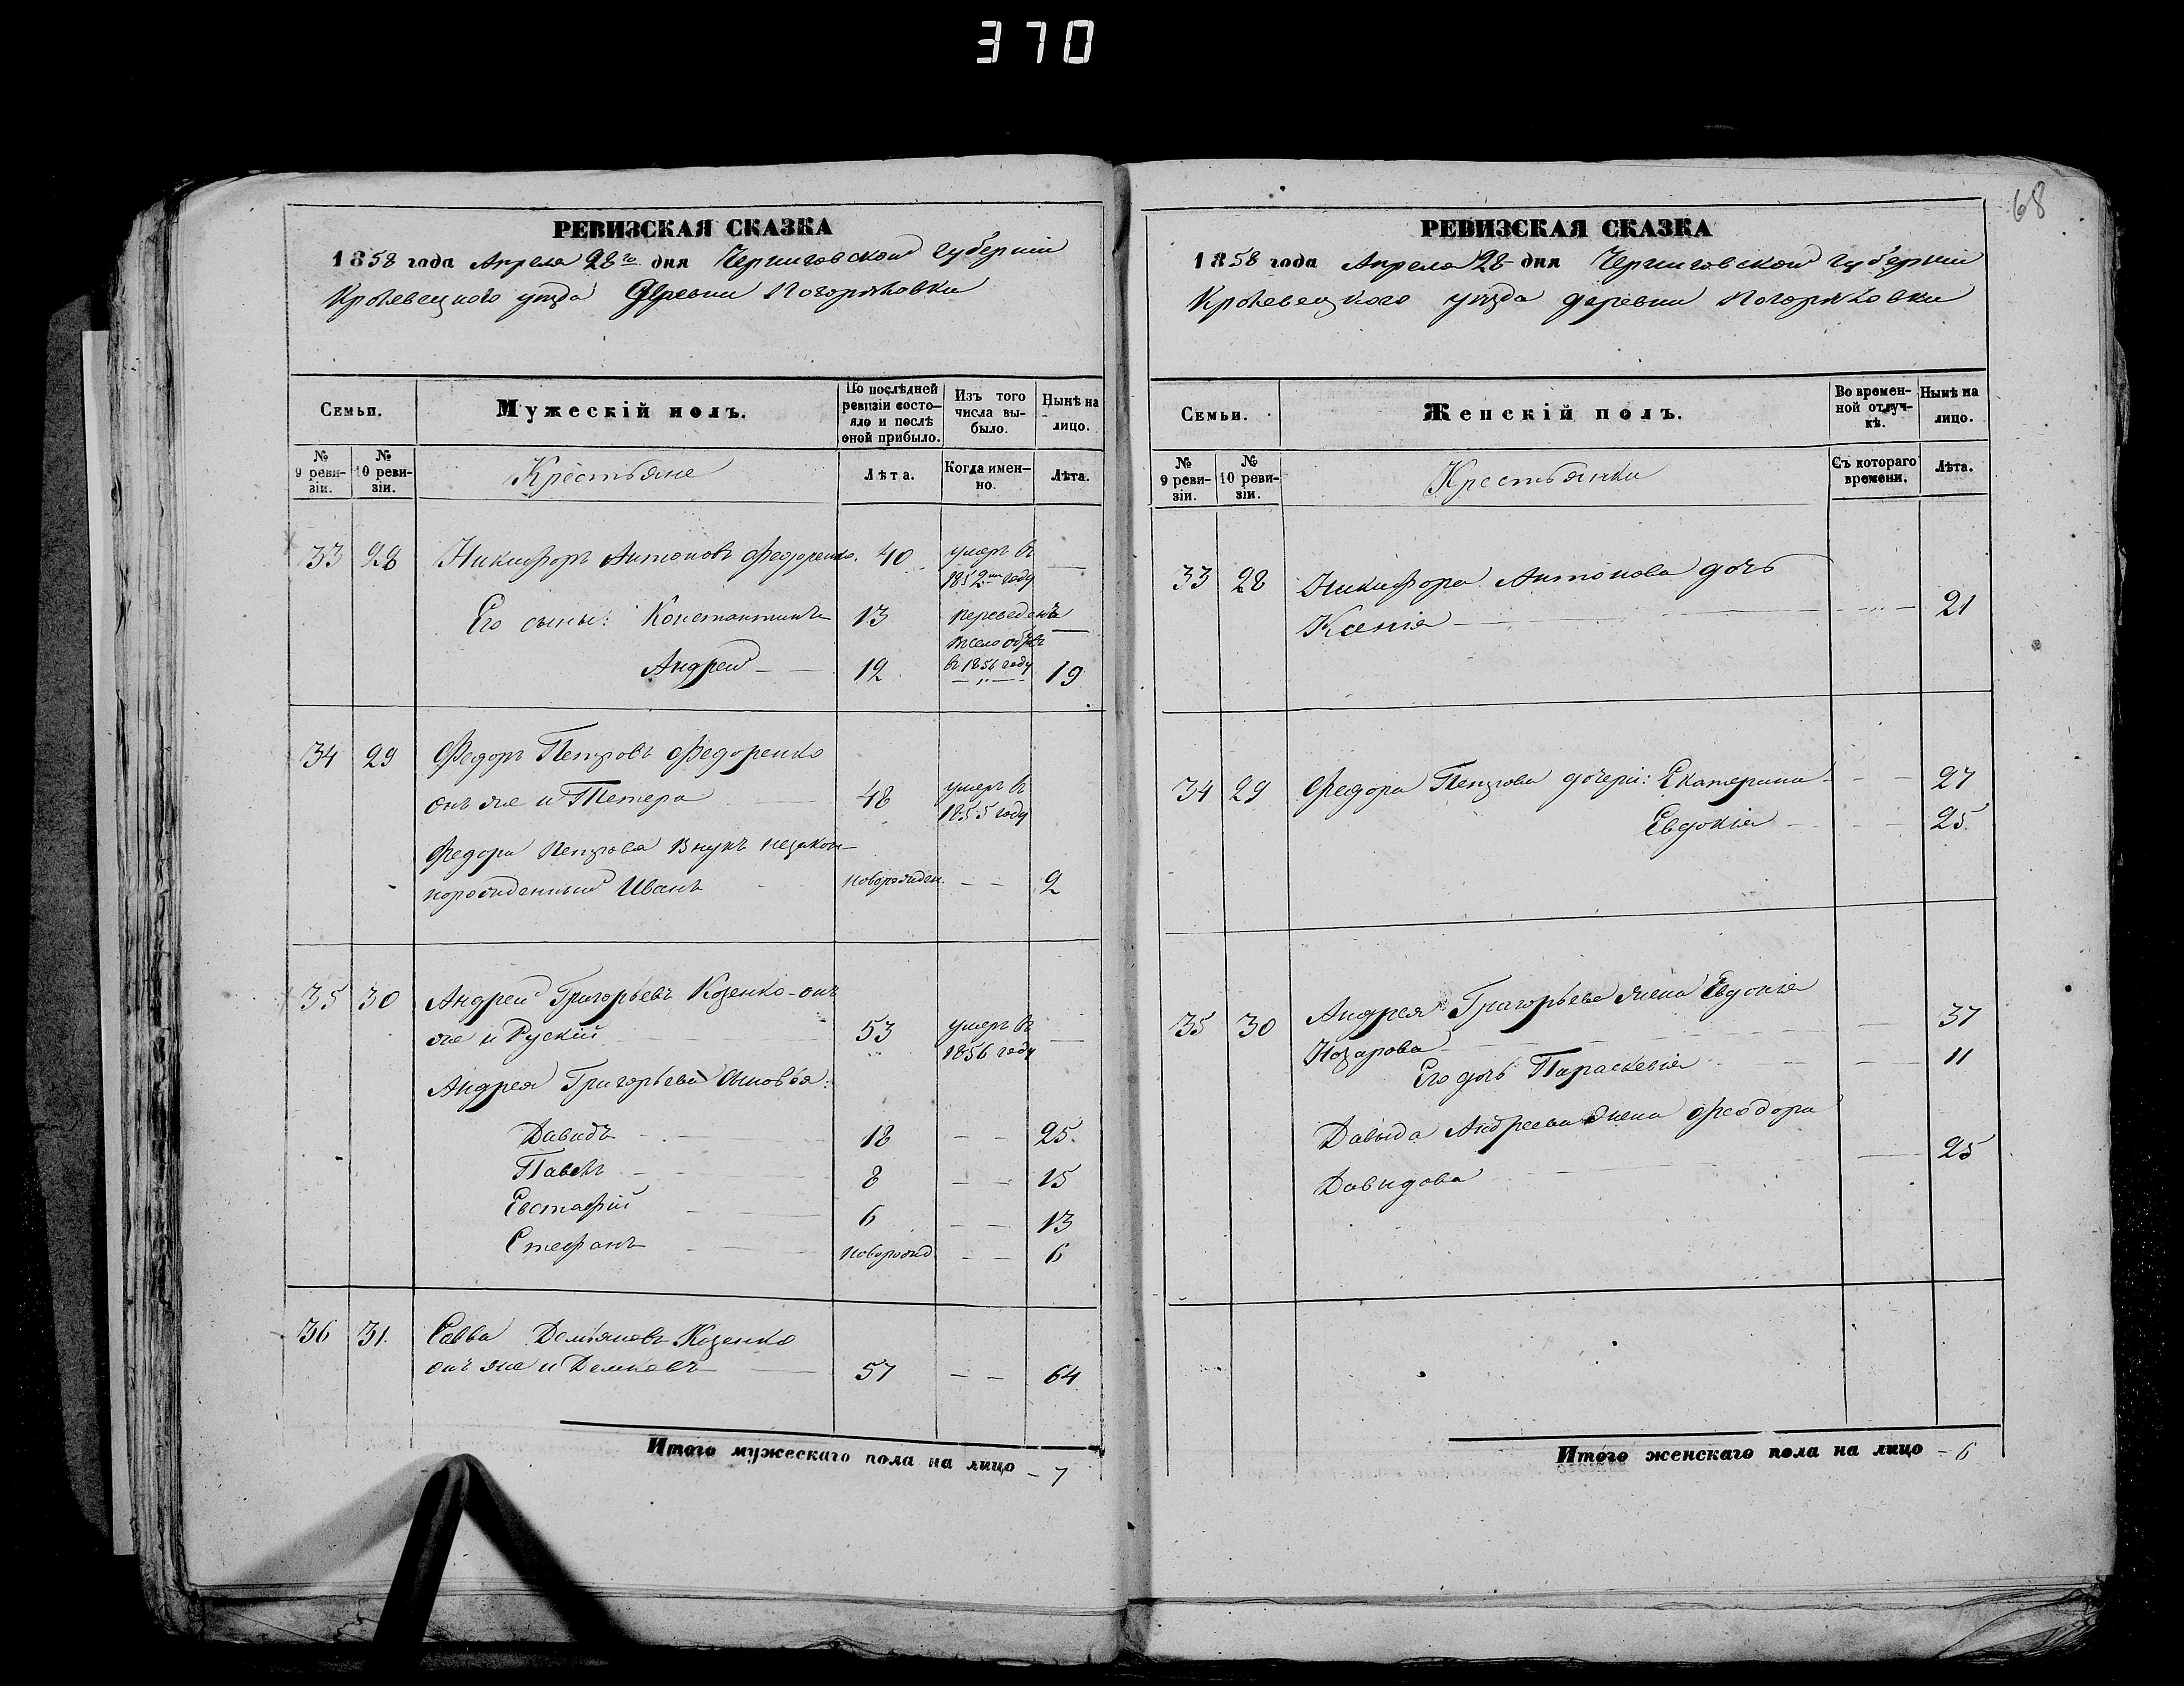 370
68
РЕВИЗСКАЯ СКАЗКА
1858 года Апреля 28го дня Черниговской губерніи
Кролевецкого уѣзда Деревни Погорѣловки
Семьи.
Мужескій полъ.
По послѣдней ревизіи состо-
яло и послѣ
оной прибыло.
Изъ того
числа вы-
было.
Нынѣ на
лицо.
№
9 реви-
зіи.
№
10 реви-
зіи.
Крестьяне
Лѣта.
Когда имен-
но.
Лѣта.
33 28 Никифоръ Антоновъ Федоренко. 40 умеръ въ
1852мъ году
Его сыны: Константинъ 13 переведенъ
въ 1856 году
Андрей 12 19
34 29 Федоръ Петровъ Федоренко
онъ же и Тетера 48 умеръ въ
1855 году
Федора Петрова внукъ незакон-
норожденный Иванъ новорожден. 2
35 30 Андрей Григорьевъ Козенко-онъ
же и Рускій 53 умеръ въ
1856 году
Андрея Григорьева сыновья:
Давидъ 18 25.
Павелъ 8 15
Евстафій 6 13
Стефанъ новорожд 6
36 31. Савва Демьяновъ Козенко
онъ же и Демковъ 57 64
Итого мужескаго пола на лицо - 7
РЕВИЗСКАЯ СКАЗКА
1858 года Апреля 28 дня Черниговской губерніи
Кролевецкого уѣзда деревни Погорѣловки
Семьи.
Женскій полъ.
Во времен-
ной отлуч-
кѣ.
Нынѣ на
лицо.
№
9 реви-
зіи.
№
10 реви-
зіи.
Крестьянки
Съ котораго
времени.
Лѣта.
33 28 Никифора Антонова дочь
Ксенія 21
34 29 Федора Петрова дочери: Екатерина 27
Евдокія 25.
35 30 Андрея Григорьева жена Евдокія
Назарова 37
Его дочь Параскевія 11
Давида Андреева жена Феодора
Давидова 25
Итого женскаго пола на лицо - 6